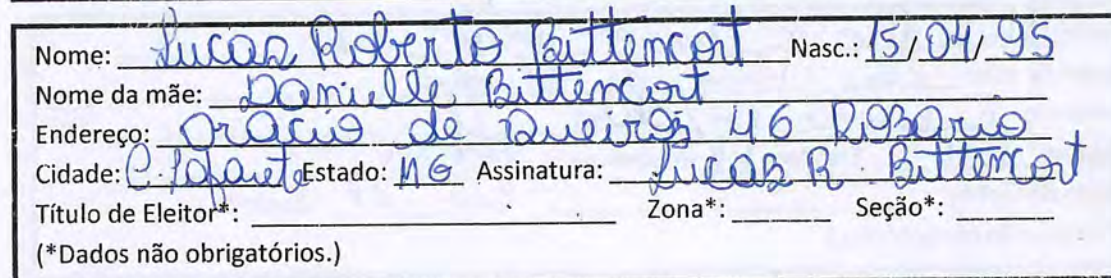 Nome: Lucas Roberto Bittencort Nasc.: 15/04/95
Nome da mãe: Danielle Bittencort
Endereço: Orácio de Queirós 46 Rosário
Cidade: C. Lafaiete Estado: MG Assinatura: Lucas R. Bittencort
Título de Eleitor*: Zona*: Seção*:
(*Dados não obrigatórios.)